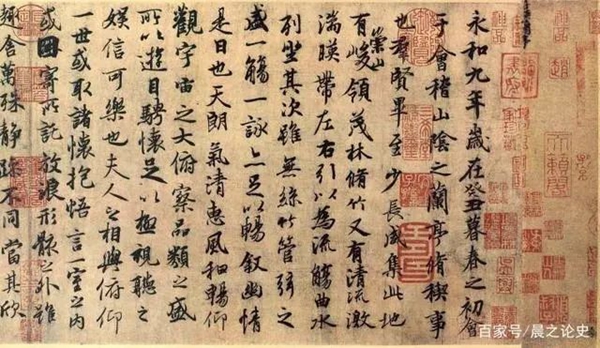 永和九年歲在癸丑暮春之初會
于會稽山陰之蘭亭脩稧事
也羣賢畢至少長咸集此地
有崇山峻領茂林脩竹又有清流激
湍暎帶左右引以為流觴曲水
列坐其次雖無絲竹管弦之
盛一觴一詠亦足以暢敘幽情
是日也天朗氣清惠風和暢仰
觀宇宙之大俯察品類之盛
所以遊目騁懷足以極視聽之
娛信可樂也夫人之相與俯仰
一世或取諸懷抱悟言一室之內
或因寄所託放浪形骸之外雖
趣舍萬殊靜躁不同當其欣
百家号/晨之论史